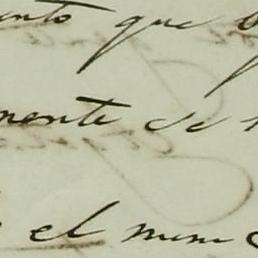 ento que
mente se
el mun